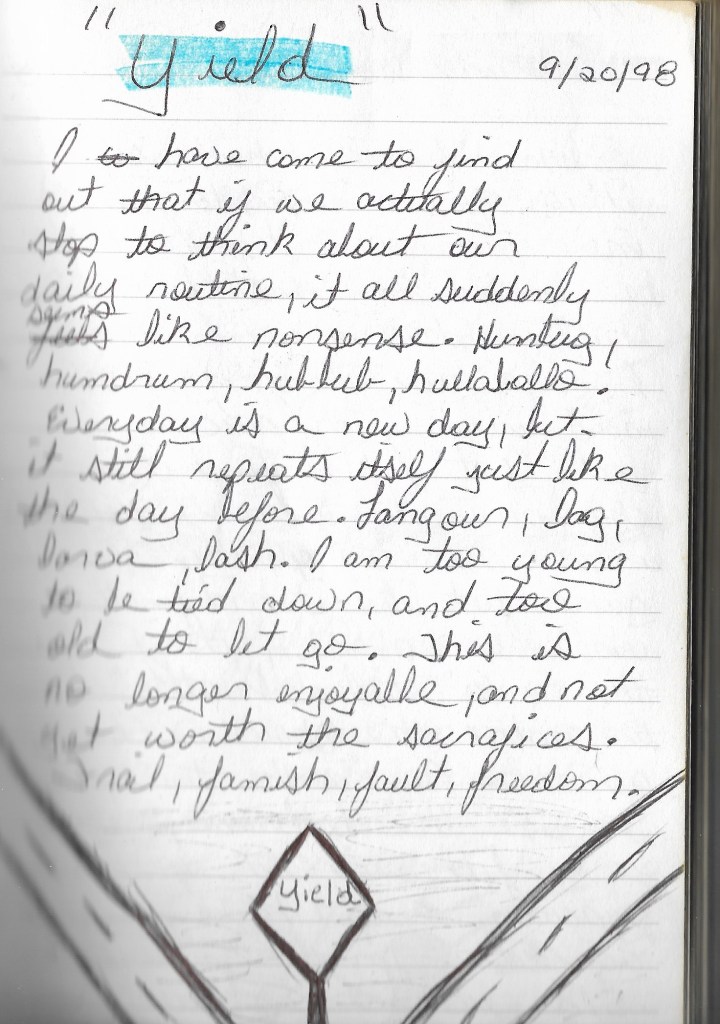 "Yield"
9/20/98
I have come to find
out that if we actually
stop to think about our
daily routine, it all suddenly
seems
like nonsense. Hunting,
humdrum, hubbub, hullaballo.
Everyday is a new day, but
it still repeats itself just like
the day before. Langour, Lag,
Larva, Lash. I am too young
to be tied down, and too
old to let go. This is
no longer enjoyable, and not
yet worth the sacrafices.
Frail, famish, fault, freedom.
Yield